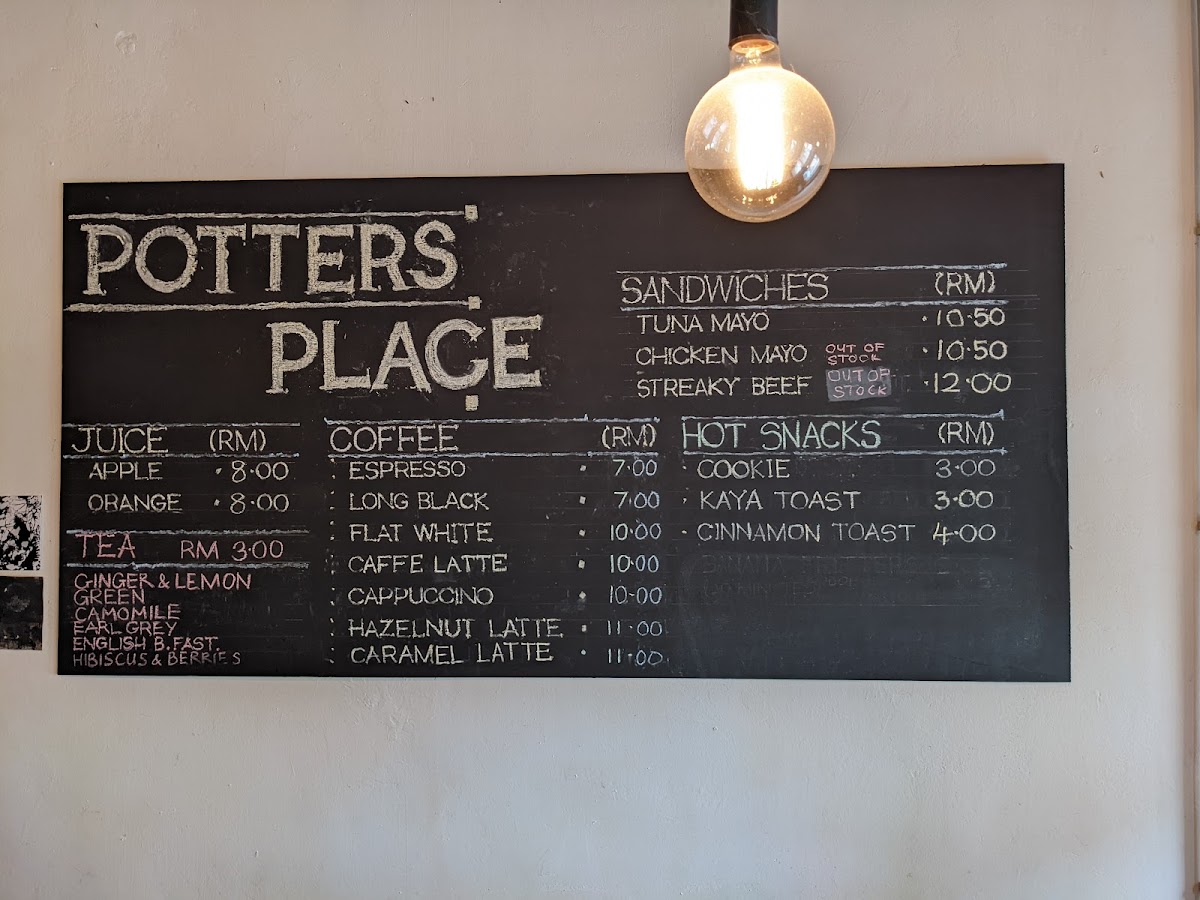 POTTERS
PLACE
SANDWICHES (RM)
TUNA MAYO 10.50
CHICKEN MAYO OUT OF STOCK 10.50
STREAKY BEEF OUT OF STOCK 12.00
JUICE (RM)
APPLE 8.00
ORANGE 8.00
TEA RM 3.00
GINGER & LEMON
GREEN
CAMOMILE
EARL GREY
ENGLISH B.FAST.
HIBISCUS & BERRIES
COFFEE (RM)
ESPRESSO 7.00
LONG BLACK 7.00
FLAT WHITE 10.00
CAFFE LATTE 10.00
CAPPUCCINO 10.00
HAZELNUT LATTE 11.00
CARAMEL LATTE 11.00
HOT SNACKS (RM)
COOKIE 3.00
KAYA TOAST 3.00
CINNAMON TOAST 4.00